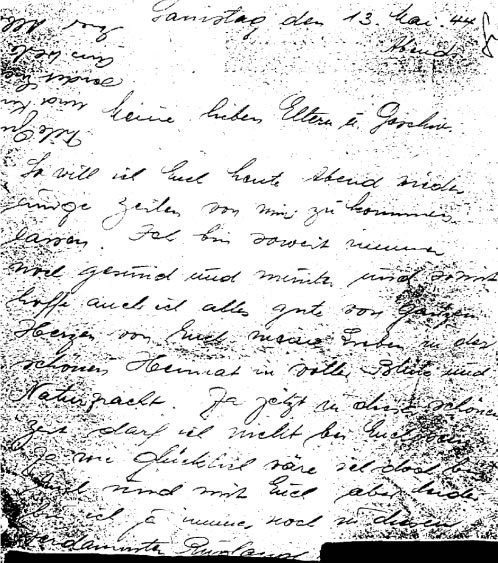 Samstag, den 13. Mai. 44
Abend
Meine lieben Eltern u. Geschw.
So will ich Euch heute Abend wieder
einige Zeilen von mir zu kommen
lassen. Ich bin soweit immer
noch gesund und munter und somit
hoffe auch ich alles gute von ganzen
Herzen von Euch meine Lieben in der
schönen Heimat in voller Blüte und
Naturpracht. Ja jetzt in diese schöne
Zeit darf ich nicht bei Euch sein
Ja wie glücklich wäre ich doch bei
Euch und mit Euch aber leider
bin ich ja immer noch in diesem
verdammten Russland